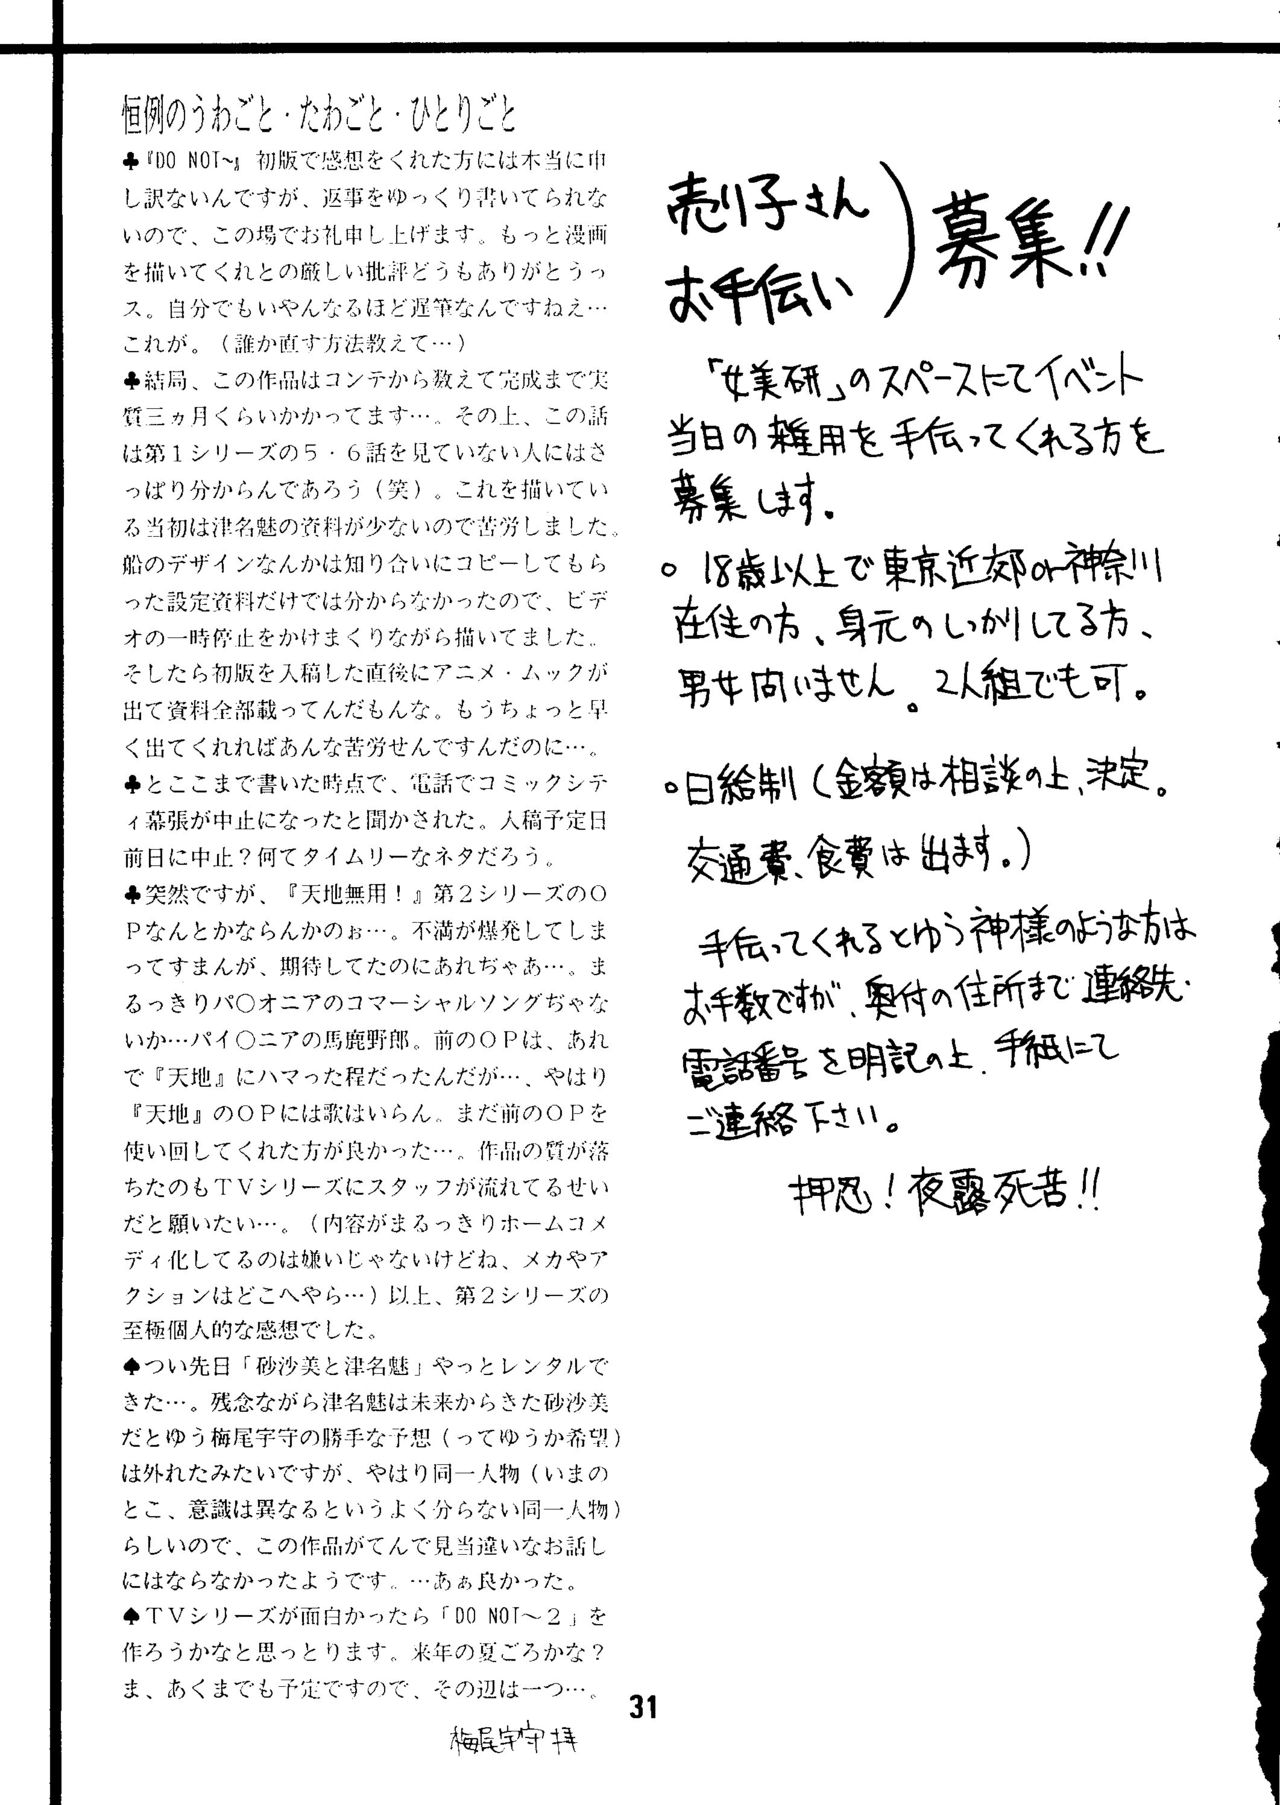 恒例のうわごと・たわごと・ひとりごと
♣『DO NOT～』初版で感想をくれた方には本当に申
し訳ないんですが、返事をゆっくり書いてられな
いので、この場でお礼申し上げます。もっと漫画
を描いてくれとの厳しい批評どうもありがとうっ
ス。自分でもいやんなるほど遅筆なんですねえ…
これが。（誰か直す方法教えて…）
♣結局、この作品はコンテから数えて完成まで実
質三ヵ月くらいかかってます…。その上、この話
は第１シリーズの５・６話を見ていない人にはさ
っぱり分からんであろう（笑）。これを描いてい
る当初は津名魅の資料が少ないので苦労しました。
船のデザインなんかは知り合いにコピーしてもら
った設定資料だけでは分からなかったので、ビデ
オの一時停止をかけまくりながら描いてました。
そしたら初版を入稿した直後にアニメ・ムックが
出て資料全部載ってんだもんな。もうちょっと早
く出てくれればあんな苦労せんですんだのに…。
♣とここまで書いた時点で、電話でコミックシテ
ィ幕張が中止になったと聞かされた。入稿予定日
前日に中止？何てタイムリーなネタだろう。
♣突然ですが、『天地無用！』第２シリーズのＯ
Ｐなんとかならんかのぉ…。不満が爆発してしま
ってすまんが、期待してたのにあれぢゃあ…。ま
るっきりパ〇オニアのコマーシャルソングぢゃな
いか…パイ〇ニアの馬鹿野郎。前のＯＰは、あれ
で『天地』にハマった程だったんだが…、やはり
『天地』のＯＰには歌はいらん。まだ前のＯＰを
使い回してくれた方が良かった…。作品の質が落
ちたのもＴＶシリーズにスタッフが流れてるせい
だと願いたい…。（内容がまるっきりホームコメ
ディ化してるのは嫌いじゃないけどね、メカやア
クションはどこへやら…）以上、第２シリーズの
至極個人的な感想でした。
♠つい先日「砂沙美と津名魅」やっとレンタルで
きた…。残念ながら津名魅は未来からきた砂沙美
だとゆう梅尾宇守の勝手な予想（ってゆうか希望）
は外れたみたいですが、やはり同一人物（いまの
とこ、意識は異なるというよく分らない同一人物）
らしいので、この作品がてんで見当違いなお話し
にはならなかったようです。…あぁ良かった。
♠ＴＶシリーズが面白かったら「DO NOT～２」を
作ろうかなと思っとります。来年の夏ごろかな？
ま、あくまでも予定ですので、その辺は一つ…。
梅尾宇守拝
売り子さん
お手伝い
）募集!!
「女美研」のスペースにてイベント
当日の雑用を手伝ってくれる方を
募集します。
○ 18歳以上で東京近郊or神奈川
在住の方、身元のしっかりしてる方、
男女問いません。2人組でも可。
○日給制（金額は相談の上、決定。
交通費、食費は出ます。）
手伝ってくれるとゆう神様のような方は
お手数ですが、奥付の住所まで連絡先・
電話番号を明記の上、手紙にて
ご連絡下さい。
押忍！夜露死苦!!
31